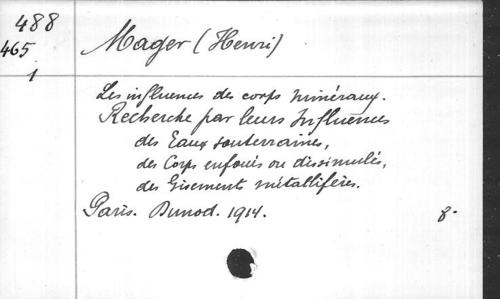 488
465
1
Mager (Henri)
Les influences des corps minéraux.
Recherche par leurs Influences
des Eaux souterraines,
des Corps enfouis ou dissimulés,
des Gisements métallifères.
Paris. Dunod. 1914. 8.